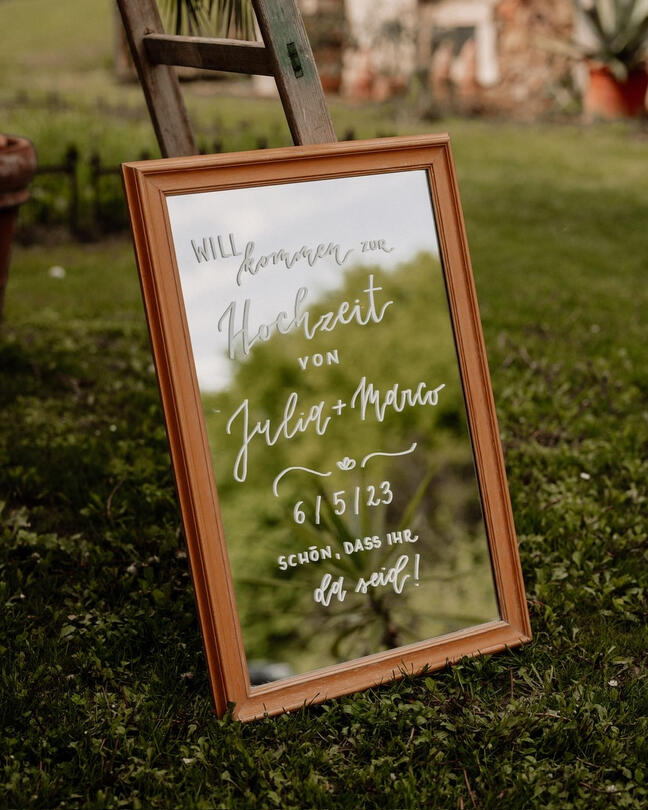 WILLkommen ZUR
Hochzeit
VON
Julia + Marco
6|5|23
SCHÖN, DASS IHR
da seid!